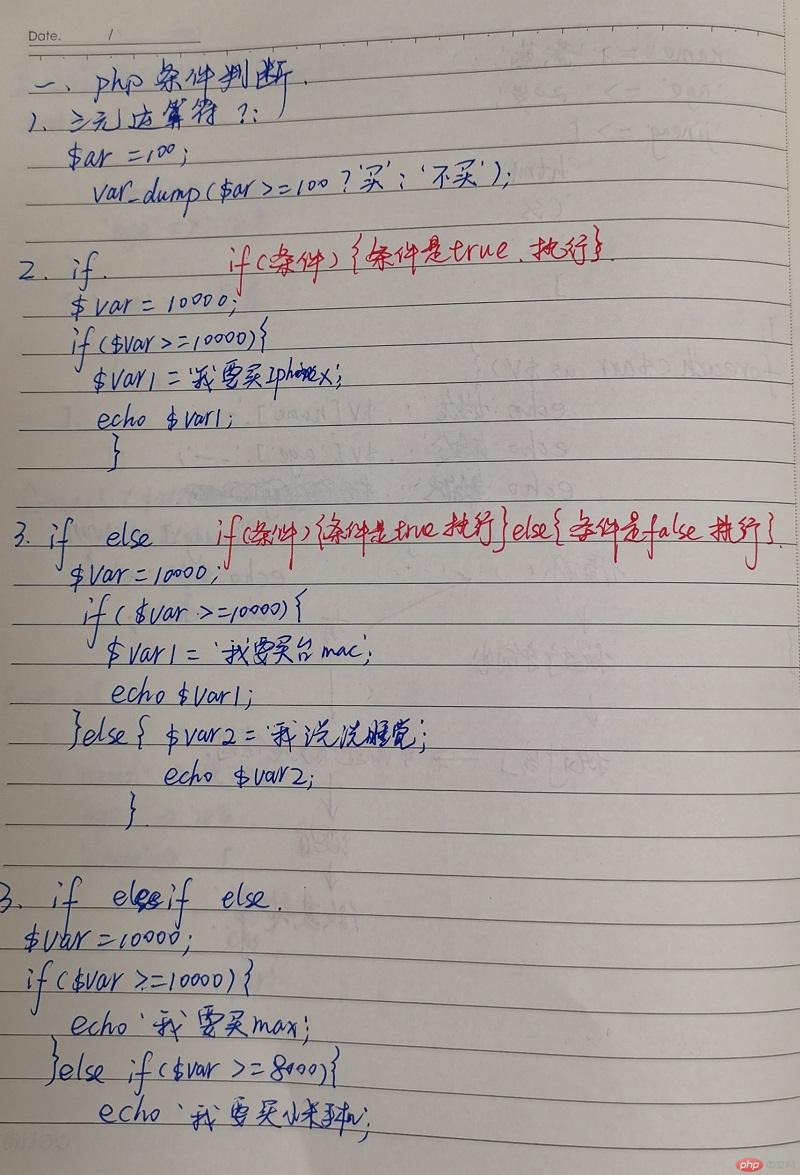 Date. /
一、php 条件判断.
1. 三元运算符 ?:
$ar =100;
var_dump($ar>=100 ?'买' : '不买');
2. if. if(条件) {条件是true.执行}.
$var = 10000;
if($var>=10000){
$var1='我要买IphoneX;
echo $var1;
}
3. if else if(条件){条件是true执行}else{条件是false执行}.
$var=10000;
if($var >=10000){
$var1 = '我要买台mac;
echo $var1;
}else{ $var2 = '我洗洗睡觉;
echo $var2;
}
3. if elesif else.
$var=10000;
if($var >=10000){
echo '我要买max;
}else if($var >=8000){
echo '我要买小米手机;
php 中文网